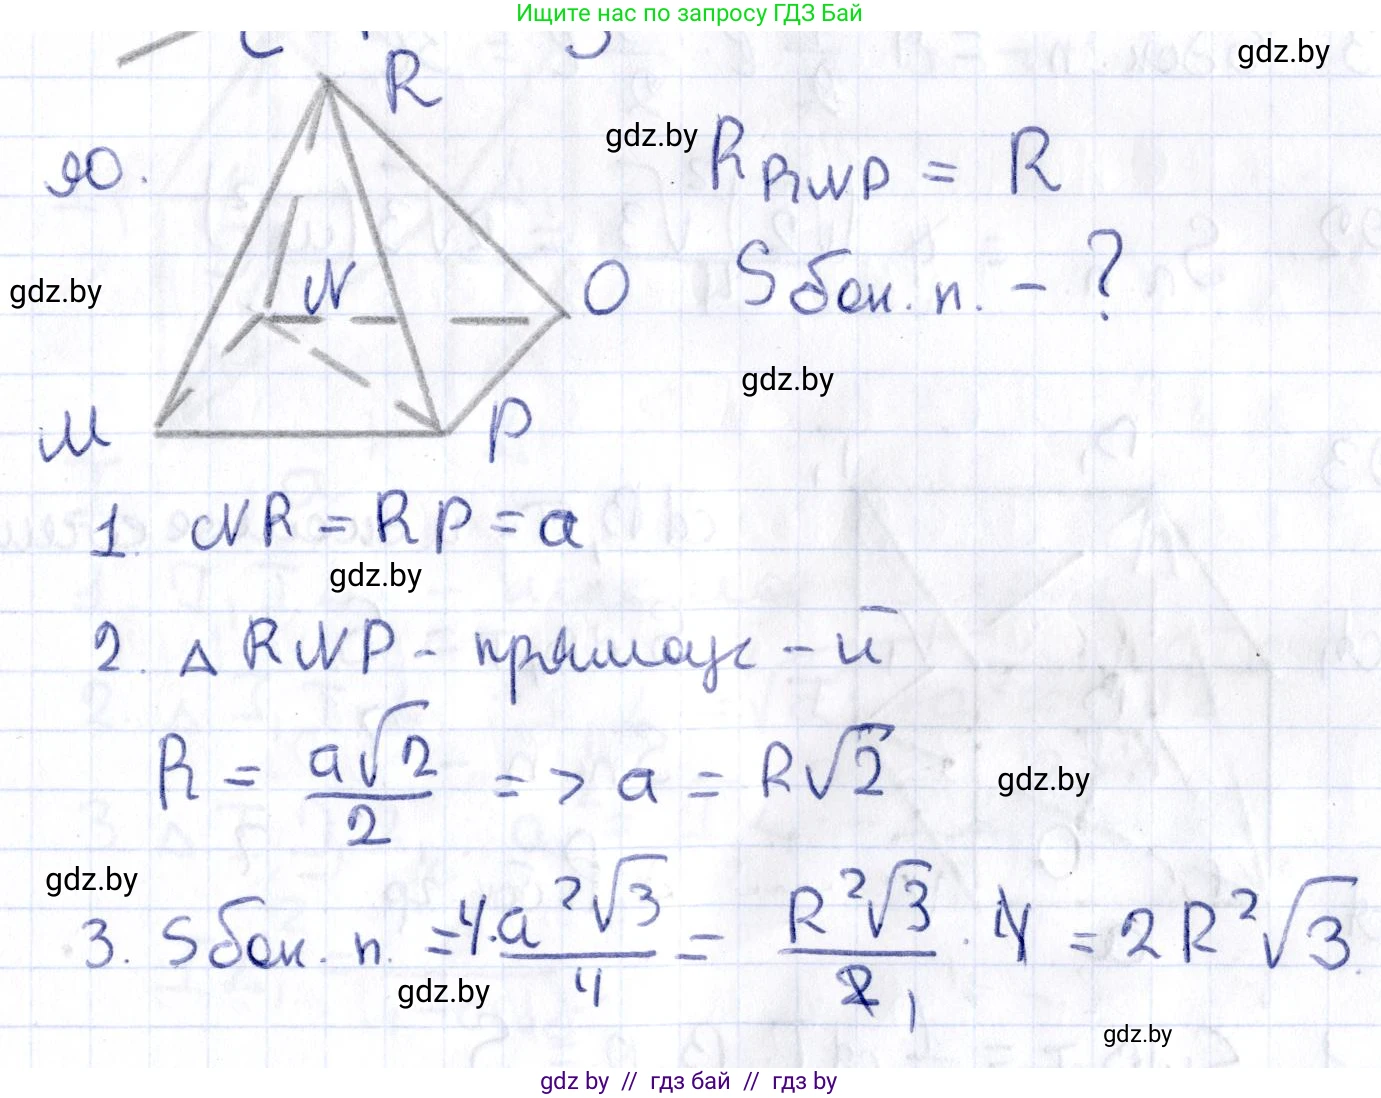 Ищите нас по запросу ГДЗ Бай
gdz.by
R
gdz.by
90.
R RNP = R
N
O
S бок. п. - ?
gdz.by
gdz.by
M
P
1. NR = RP = a
gdz.by
2. △ RNP - прямоуг - й
R = a√2/2 => a = R√2
gdz.by
gdz.by
3. S бок. п. = 4 · a²√3/4 = R²√3/2 · 4 = 2R²√3
gdz.by
1
gdz.by
gdz by // гдз бай // гдз by